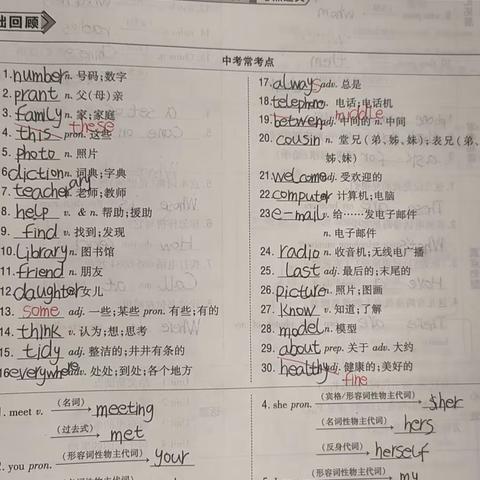 础回顾
中考常考点
1. number n. 号码;数字
2. prant n. 父(母)亲
3. family n. 家;家庭
these
4. this pron. 这些
5. photo n. 照片
6 diction n. 词典;字典
ary
7. teacher 老师;教师
8. help v. & n. 帮助;援助
9. find v. 找到;发现
10. library n. 图书馆
11. friend n. 朋友
12 daughter 女儿
13. some adj. 一些;某些 pron. 有些;有的
14. think v. 认为;想;思考
15. tidy adj. 整洁的;井井有条的
16 everywhere 处处;到处;各个地方
17. always adv. 总是
18 telephone 电话;电话机
middle
19. betwen adj. 中间的 n. 中间
20. cousin n. 堂兄(弟、姊、妹);表兄(弟、
姊、妹)
21. welcome adj. 受欢迎的
22 computer 计算机;电脑
23 e-mail v. 给……发电子邮件
n. 电子邮件
24. radio n. 收音机;无线电广播
25. last adj. 最后的;末尾的
26. picture n. 照片;图画
27. know v. 知道;了解
28. model n. 模型
29. about prep. 关于 adv. 大约
30. healthy adj. 健康的;美好的
fine
1. meet v. (名词) meeting
(过去式) met
2. you pron. (形容词性物主代词) your
4. she pron. (宾格/形容词性物主代词) her
(名词性物主代词) hers
(反身代词) herself
(形容词性物主代词) my